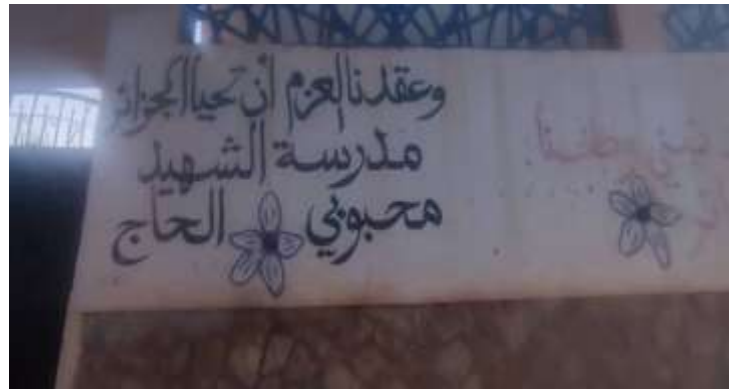 وعقدنا العزم أن تحيا الجزائر
مدرسة الشهيد
محبوبي الحاج